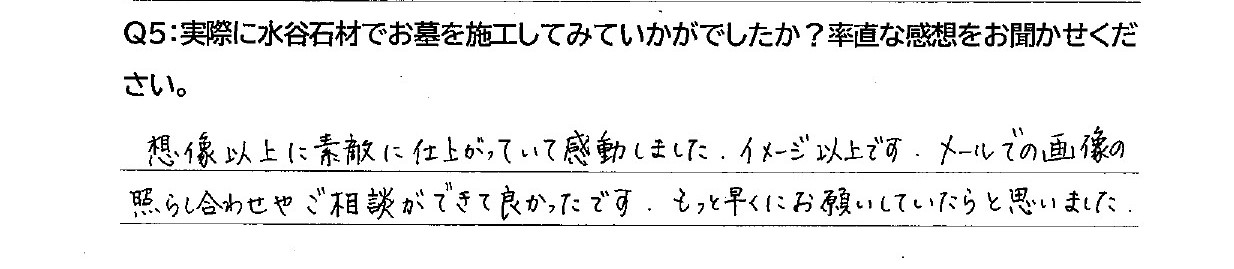 Q5:実際に水谷石材でお墓を施工してみていかがでしたか?率直な感想をお聞かせくだ
さい。
想像以上に素敵に仕上がっていて感動しました．イメージ以上です．メールでの画像の
照らし合わせやご相談ができて良かったです．もっと早くにお願いしていたらと思いました．